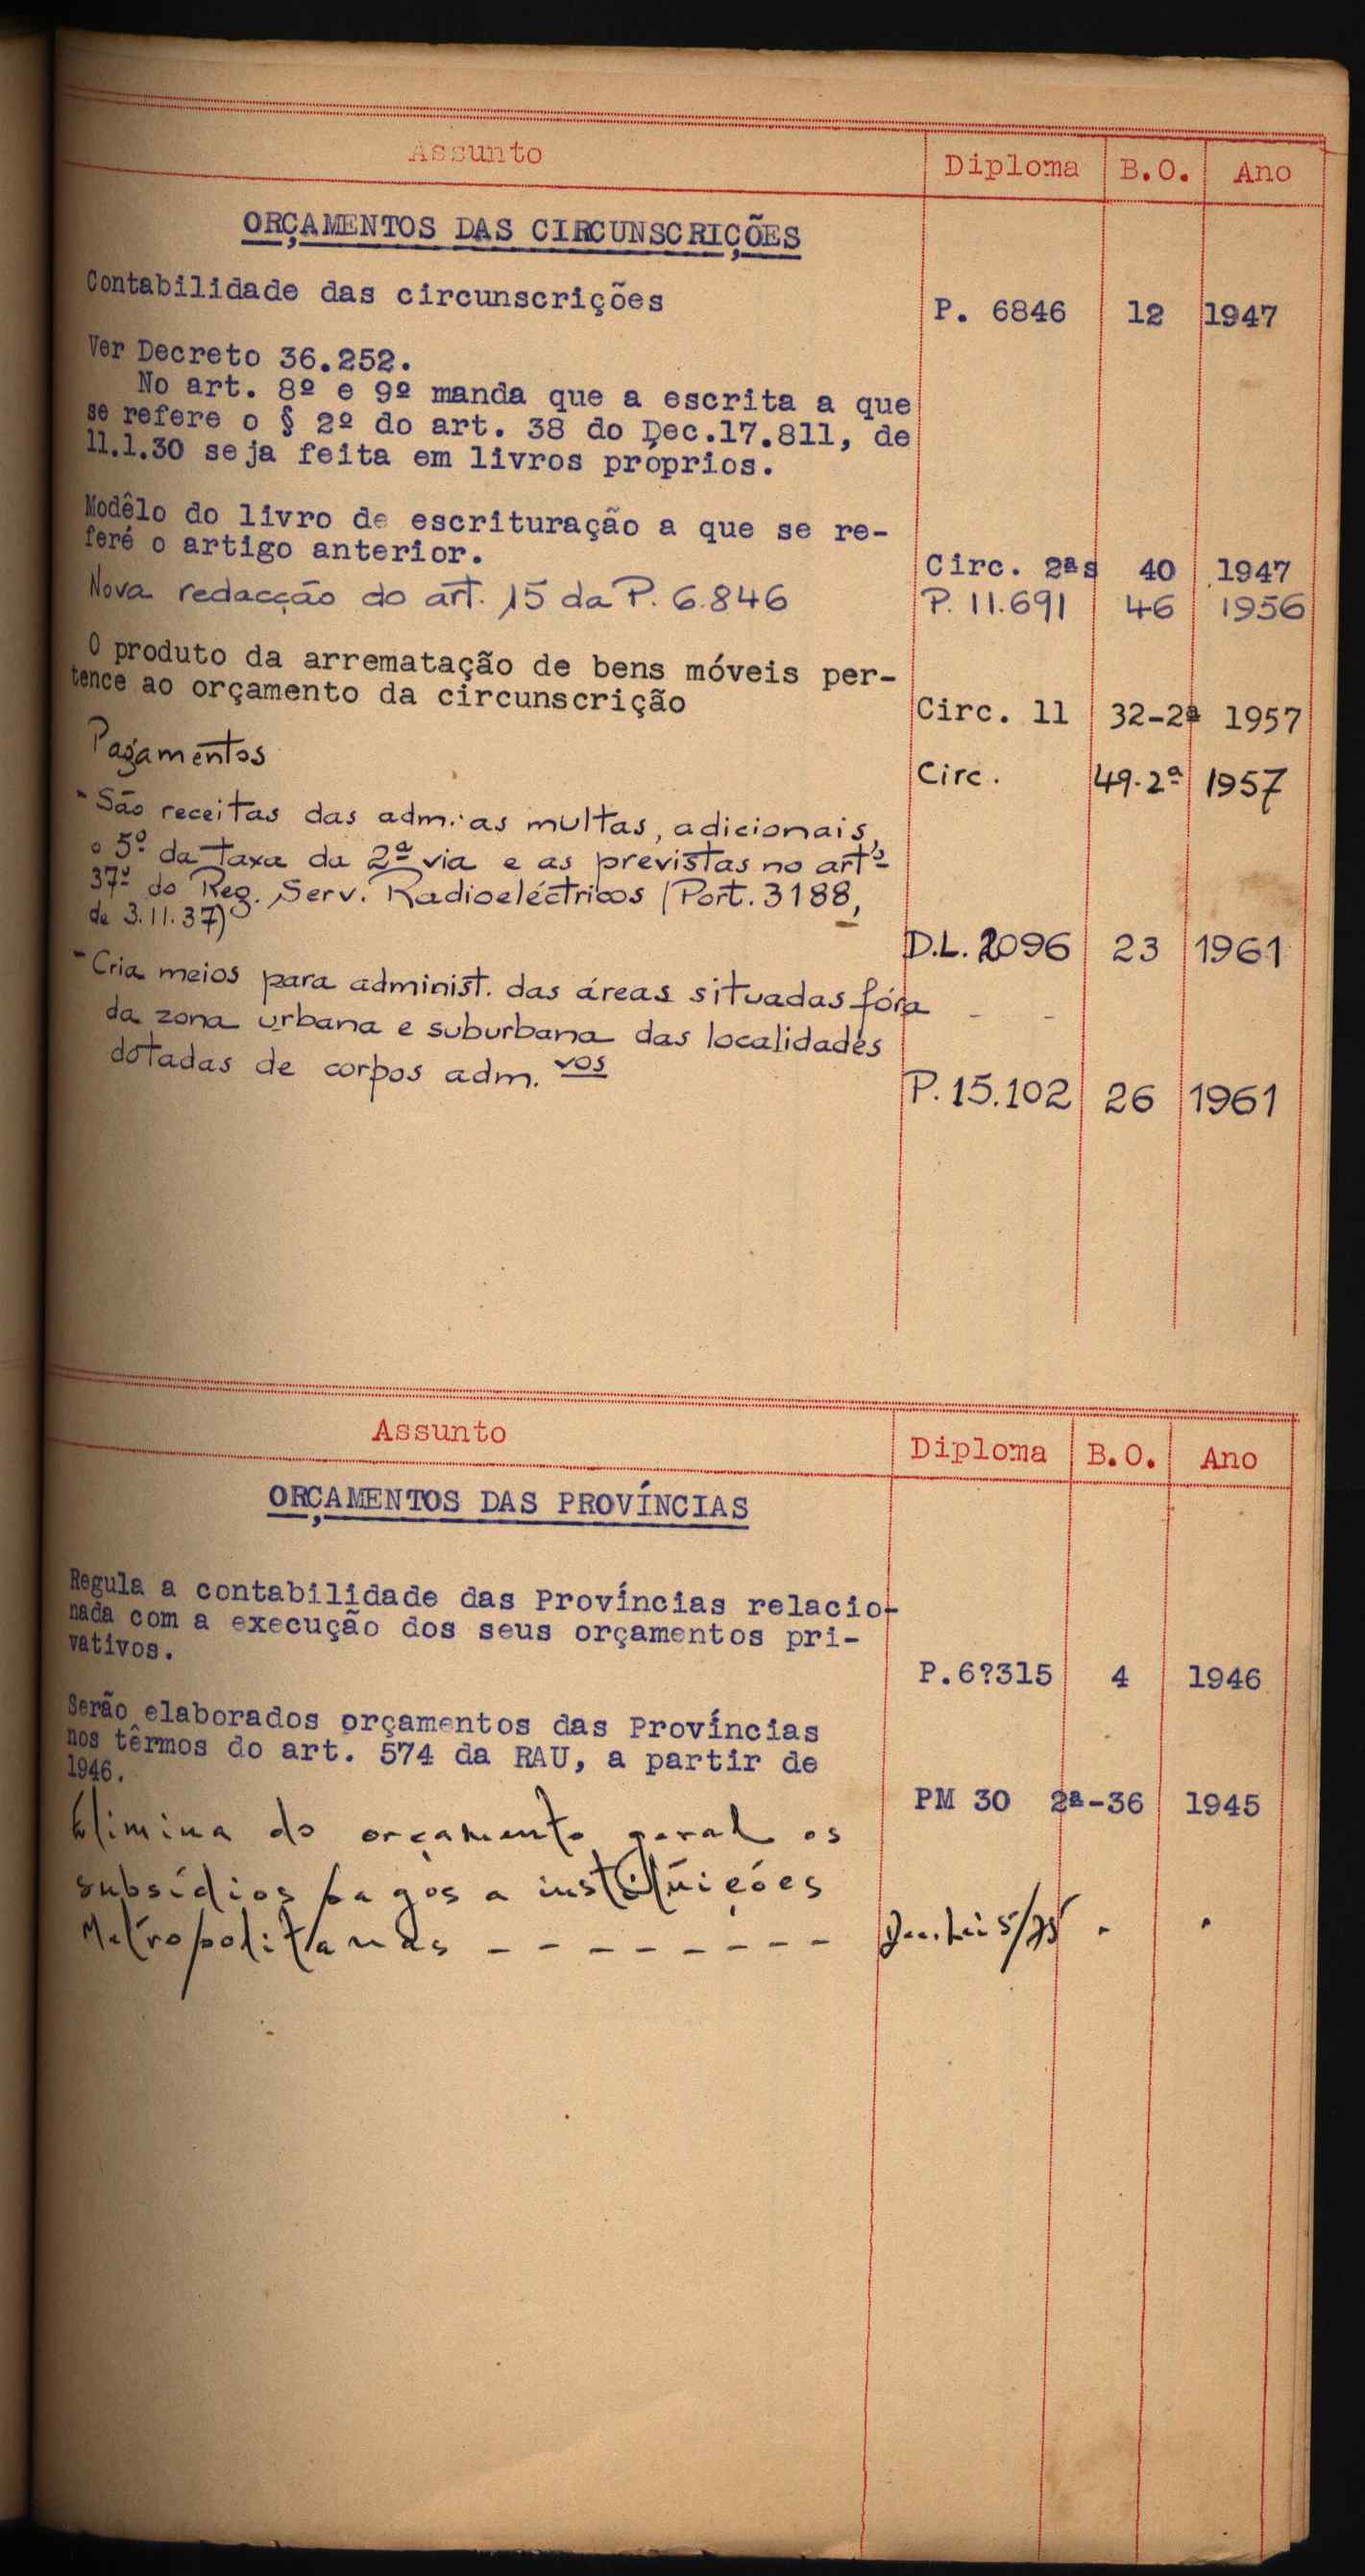 Assunto Diploma B.O. Ano
ORÇAMENTOS DAS CIRCUNSCRIÇÕES
Contabilidade das circunscrições P. 6846 12 1947
Ver Decreto 36.252.
No art. 8º e 9º manda que a escrita a que
se refere o § 2º do art. 38 do Dec.17.811, de
11.1.30 seja feita em livros próprios.
Modêlo do livro de escrituração a que se re-
fere o artigo anterior. Circ. 2ªs 40 1947
Nova redacção do art. 15 da P. 6.846 P. 11.691 46 1956
O produto da arrematação de bens móveis per-
tence ao orçamento da circunscrição Circ. 11 32-2ª 1957
Pagamentos Circ. 49-2ª 1957
- São receitas das adm.as multas, adicionais,
o 5º da taxa da 2ª via e as previstas no artº
37º do Reg. Serv. Radioeléctricos (Port. 3188,
de 3.11.37) D.L. 2096 23 1961
- Cria meios para administ. das áreas situadas fóra
da zona urbana e suburbana das localidades
dotadas de corpos adm. vos P. 15.102 26 1961
Assunto Diploma B.O. Ano
ORÇAMENTOS DAS PROVÍNCIAS
Regula a contabilidade das Províncias relacio-
nada com a execução dos seus orçamentos pri-
vativos. P.6?315 4 1946
Serão elaborados orçamentos das Províncias
nos têrmos do art. 574 da RAU, a partir de
1946. PM 30 2ª-36 1945
Elimina do orçamento geral os
subsídios pagos a instituições
Metropolitanas - - - - - - - - - 5/75